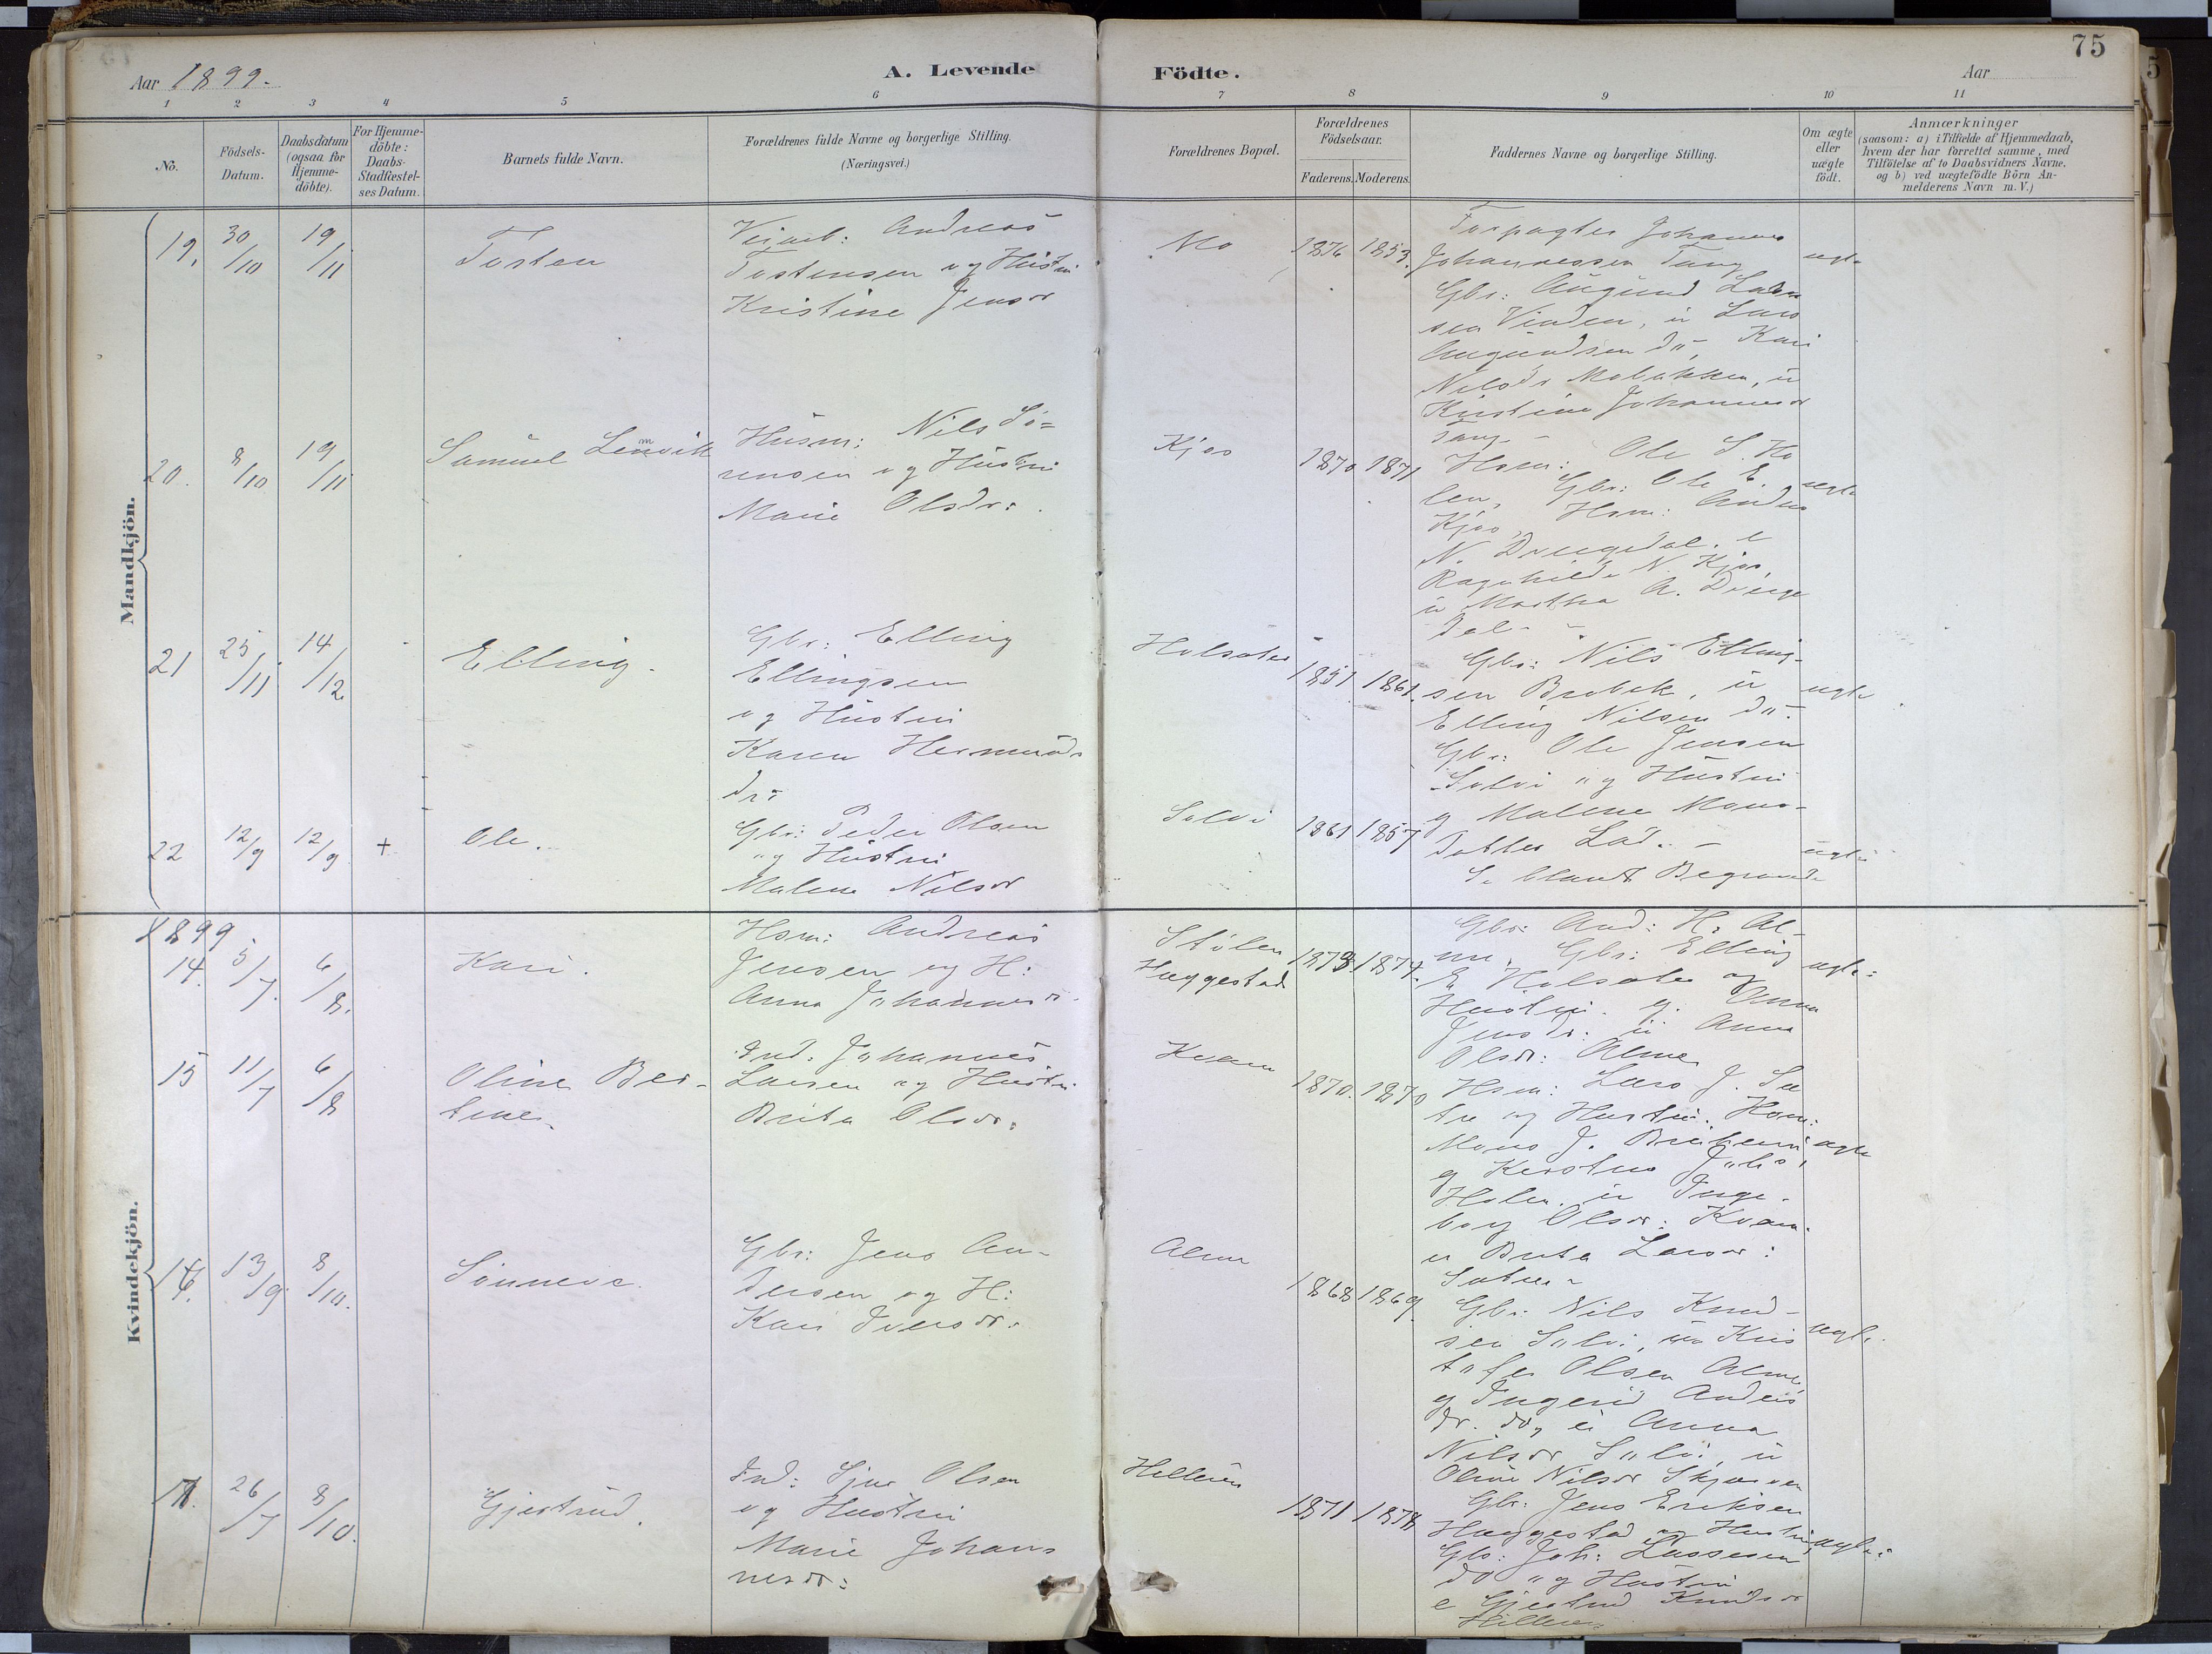 75
Aar 1899.
A. Levende Födte.
Aar
1 2 3 4 5 6 7 8 9 10 11
No.
Födsels-Datum.
Daabsdatum (ogsaa for Hjemme-döbte).
For Hjemme-döbte: Daabs-Stadfæstel-ses Datum.
Barnets fulde Navn.
Forældrenes fulde Navne og borgerlige Stilling.
(Næringsvei.)
Forældrenes Bopæl.
Forældrenes Födselsaar.
Faderens. Moderens.
Faddernes Navne og borgerlige Stilling.
Om ægte eller uægte födt.
Anmærkninger
(saasom: a) i Tilfælde af Hjemmedaab,
hvem der har forrettet samme, med
Tilföielse af to Daabsvidners Navne,
og b) ved uægtefödte Börn An-
melderens Navn m. V.)
Mandkjön.
19. 30/10 19/11
Tosten
Andreas
Tostensen og Hustru
Kristine Jensdr
Mo
1876 1853.
Forpagter Johannes
Johannessen Tang
Gbr: Augund
sen Vinden, u Lars
Augundsen do, Kari
Nilsdr Mobakken, u
Kristine Johannesdr
Tang
ægte
20. 8/10 19/11
Samuel Lemvik
Husm: Nils Sö-
rensen og Hustru
Marie Olsdr:
Kjos
1870 1871
Hsm: Ole S. Ho
len, Gbr: Ole E.
Kjos, Hsm: Anders
N. Dringedal. e
Ragnhilde N. Kjos,
u Martha A. Dringe
dal
ægte
21 25/11 14/12
Elling.
Gbr: Elling
Ellingsen
og Hustru
Karen Hermunds
dr:
Holsæter
1851 1861.
Gbr: Nils Elling-
sen Brobek, u
Elling Nilsen do.
Gbr: Ole Jensen
Solvi og Hustru
g Malene Mons-
datter Lad.
ægte
22 12/9 12/9 +
Ole.
Gbr: Peder Olsen
og Hustru
Malene Nilsdr
Solvi
1861 1857
S. blandt Begravede
ægte
Kvindekjön.
1899
14. 5/7. 6/8.
Kari.
Hsm: Andreas
Jensen og H:
Anna Johannesdr.
Stölen
Haggestad
1873. 1874.
Gbr: And: H. Al-
me, Gbr: Elling
E Holsæter og
Hustru. g. Anna
Jensdr: u Anna
Olsdr: Alme
ægte:
15 11/7 6/8
Oline Ber-
tine.
Ind. Johannes
Larsen og Hustru
Brita Olsdr:
Kvam
1870. 1870
Hsm: Lars J. Sæ
tre og Hustru. Hsm:
Mons J.
g Kerstine Johs,
Holen. u Inge-
borg Olsdr: Kvam.
u Brita Larsdr:
Sætre
ægte
16. 13/9 8/10.
Sönneve.
Gbr: Jens An-
dersen og H:
Kari Iversdr:
Alme
1868 1869
Gbr: Nils Knud-
sen Solvi, u Kris
tofer Olsen Alme,
g Ingerid Anders
dr. do, u Anna
Nilsdr Solvi, u
Oline Nilsdr Skjærven
ægte.
17. 26/7 8/10.
Gjertrud.
Ind: Sjur Olsen
og Hustru
Marie Johan-
nesdr:
Hilleren
1871 1878
Gbr: Jens Eriksen
Haggestad og Hustru,
Gbr: Joh: Lassesen
do og Hustru
e Gjertrud Knudsdr
Hilleren
ægte: